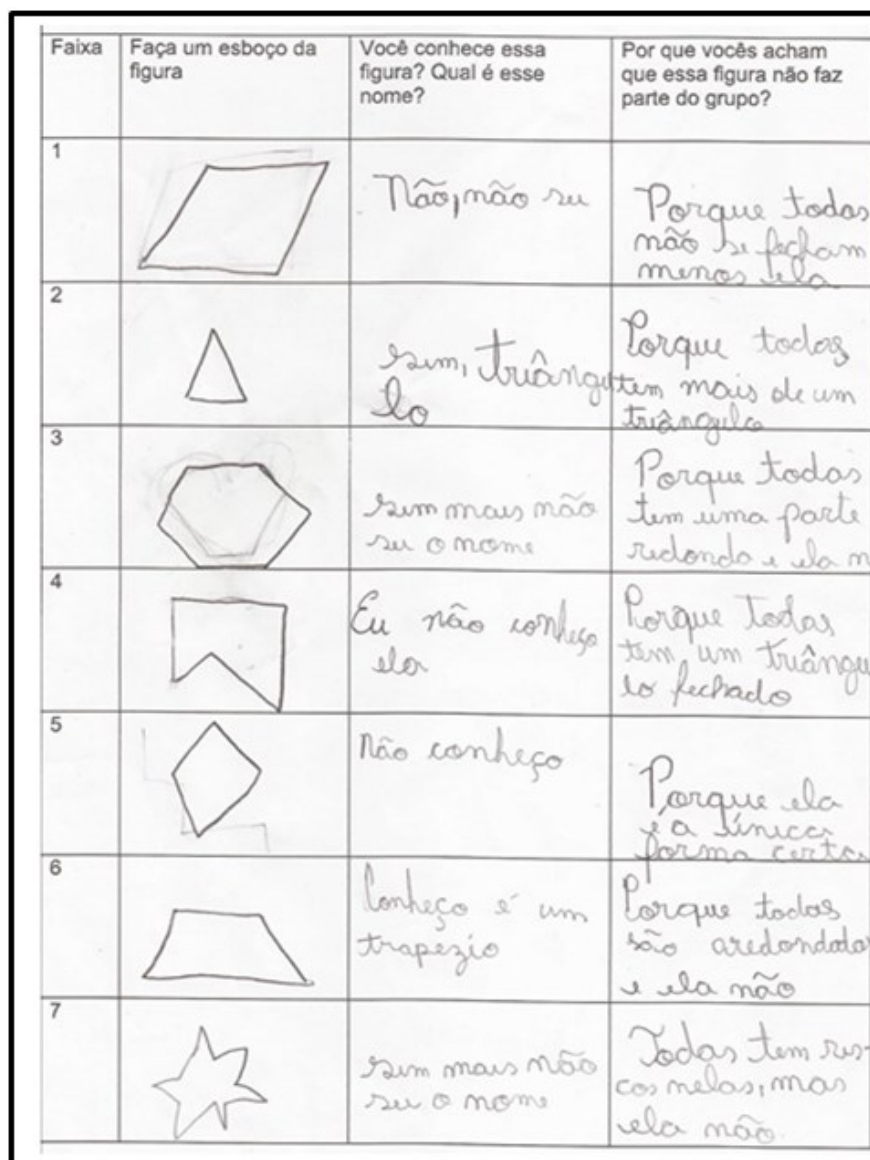 Faixa
Faça um esboço da
figura
Você conhece essa
figura? Qual é esse
nome?
Por que vocês acham
que essa figura não faz
parte do grupo?
1
Não, não sei
Porque todas
não se fecham
menos ela
2
sim, triângu
lo
Porque todas
tem mais de um
triângulo
3
sim mais não
sei o nome
Porque todas
tem uma parte
redonda e ela n
4
Eu não conheço
ela
Porque todas
tem um triângu
lo fechado
5
não conheço
Porque ela
é a única
forma certa
6
Conheço é um
trapezio
Porque todas
são aredondadas
e ela não
7
sim mais não
sei o nome
Todas tem ris-
cos nelas, mas
ela não.